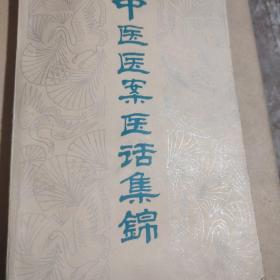 中医医案医话集锦